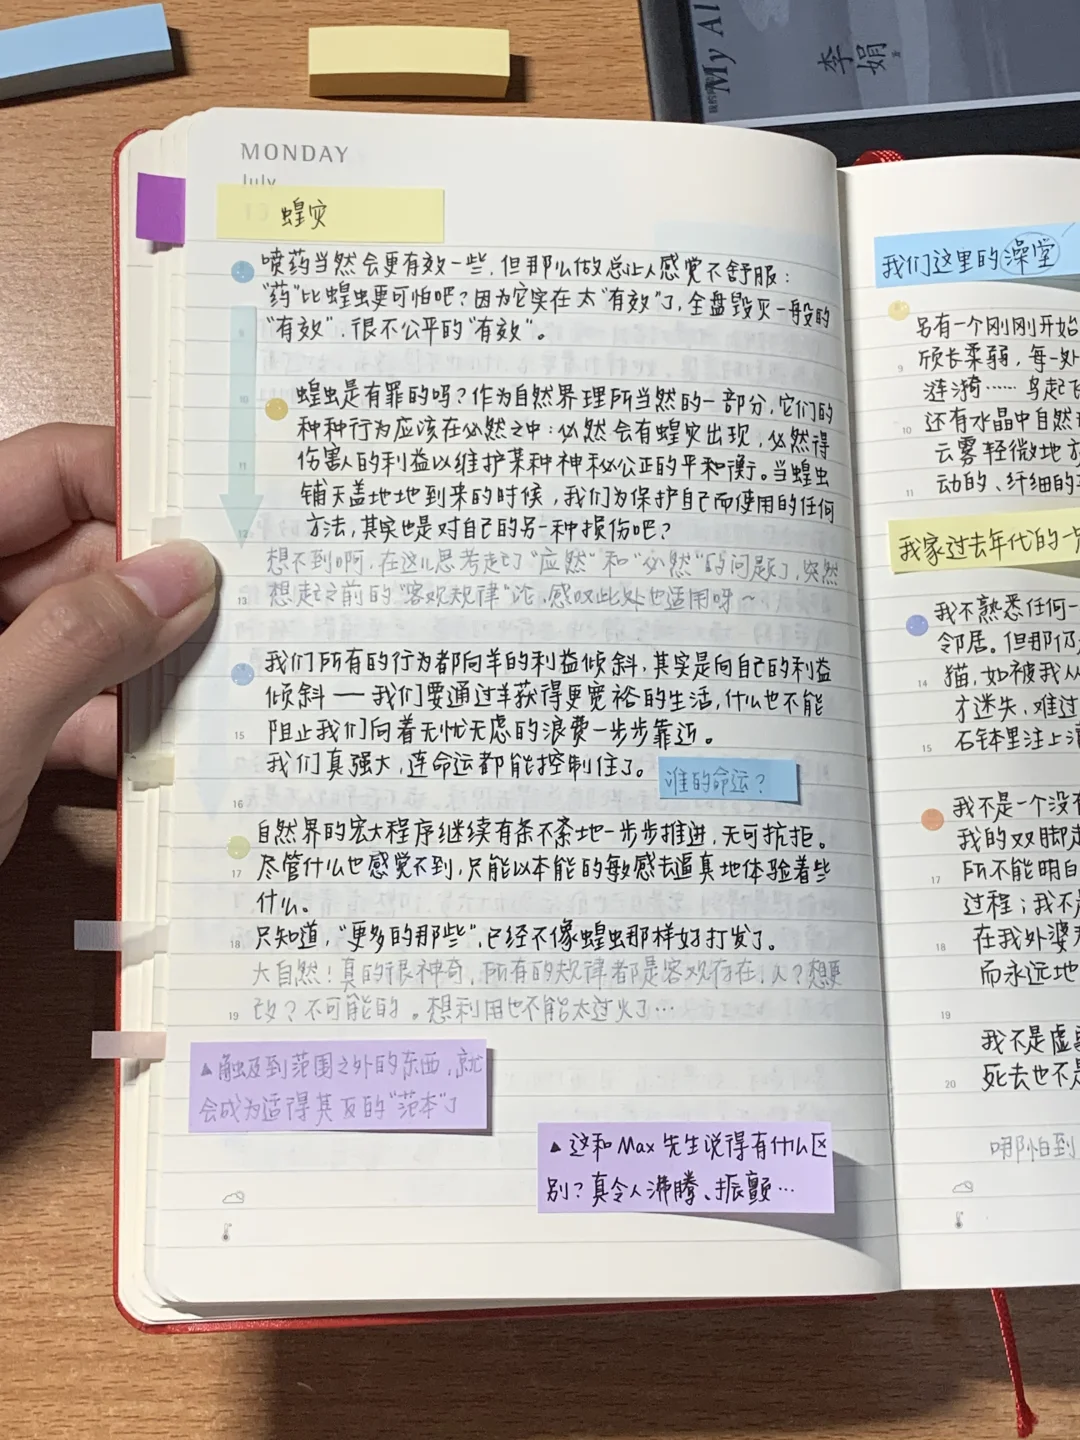 My Al
李娟
MONDAY
July
蝗灾
喷药当然会更有效一些，但那么做总让人感觉不舒服：
"药"比蝗虫更可怕吧？因为它实在太"有效"了，全盘毁灭一般的
"有效"，很不公平的"有效"。
蝗虫是有罪的吗？作为自然界理所当然的一部分，它们的
种种行为应该在必然之中：必然会有蝗灾出现，必然得
伤害人的利益以维护某种神秘公正的平和衡。当蝗虫
铺天盖地地到来的时候，我们为保护自己而使用的任何
方法，其实也是对自己的另一种损伤吧？
想不到啊，在这儿思考起了"应然"和"必然"的问题了，突然
想起之前的"客观规律"论，感叹此处也适用呀～
我们所有的行为都向羊的利益倾斜，其实是向自己的利益
倾斜——我们要通过羊获得更宽裕的生活，什么也不能
阻止我们向着无忧无虑的浪费一步步靠近。
我们真强大，连命运都能控制住了。
谁的命运？
自然界的宏大程序继续有条不紊地一步步推进，无可抗拒。
尽管什么也感觉不到，只能以本能的敏感去逼真地体验着些
什么。
只知道，"更多的那些"，已经不像蝗虫那样好打发了。
大自然！真的很神奇，所有的规律都是客观存在，人？想更
改？不可能的。想利用也不能太过火了…
▲触及到范围之外的东西，就
会成为适得其反的"范本"了
▲这和Max先生说得有什么区
别？真令人沸腾、振颤…
我们这里的澡堂
另有一个刚刚开始
颀长柔弱，每一处
涟漪……鸟起飞
还有水晶中自然
云雾轻微地
动的、纤细的
我家过去年代的一
我不熟悉任何一
邻居。但那仍
猫，如被我从
才迷失、难过
石钵里注上清
我不是一个没有
我的双脚走
所不能明白
过程；我不
在我外婆
而永远地
我不是虚
死去也不是
哪怕到
9
10
11
12
13
15
16
17
18
19
9
10
11
14
15
17
18
19
20